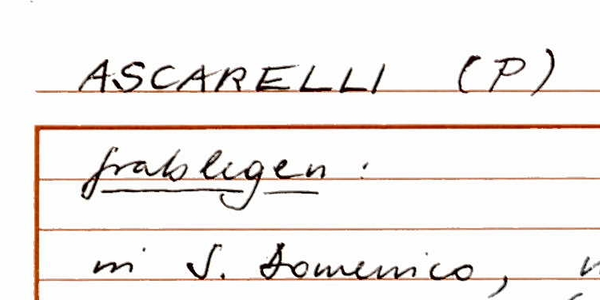 ASCARELLI (P)
grablegen :
in S. Domenico,